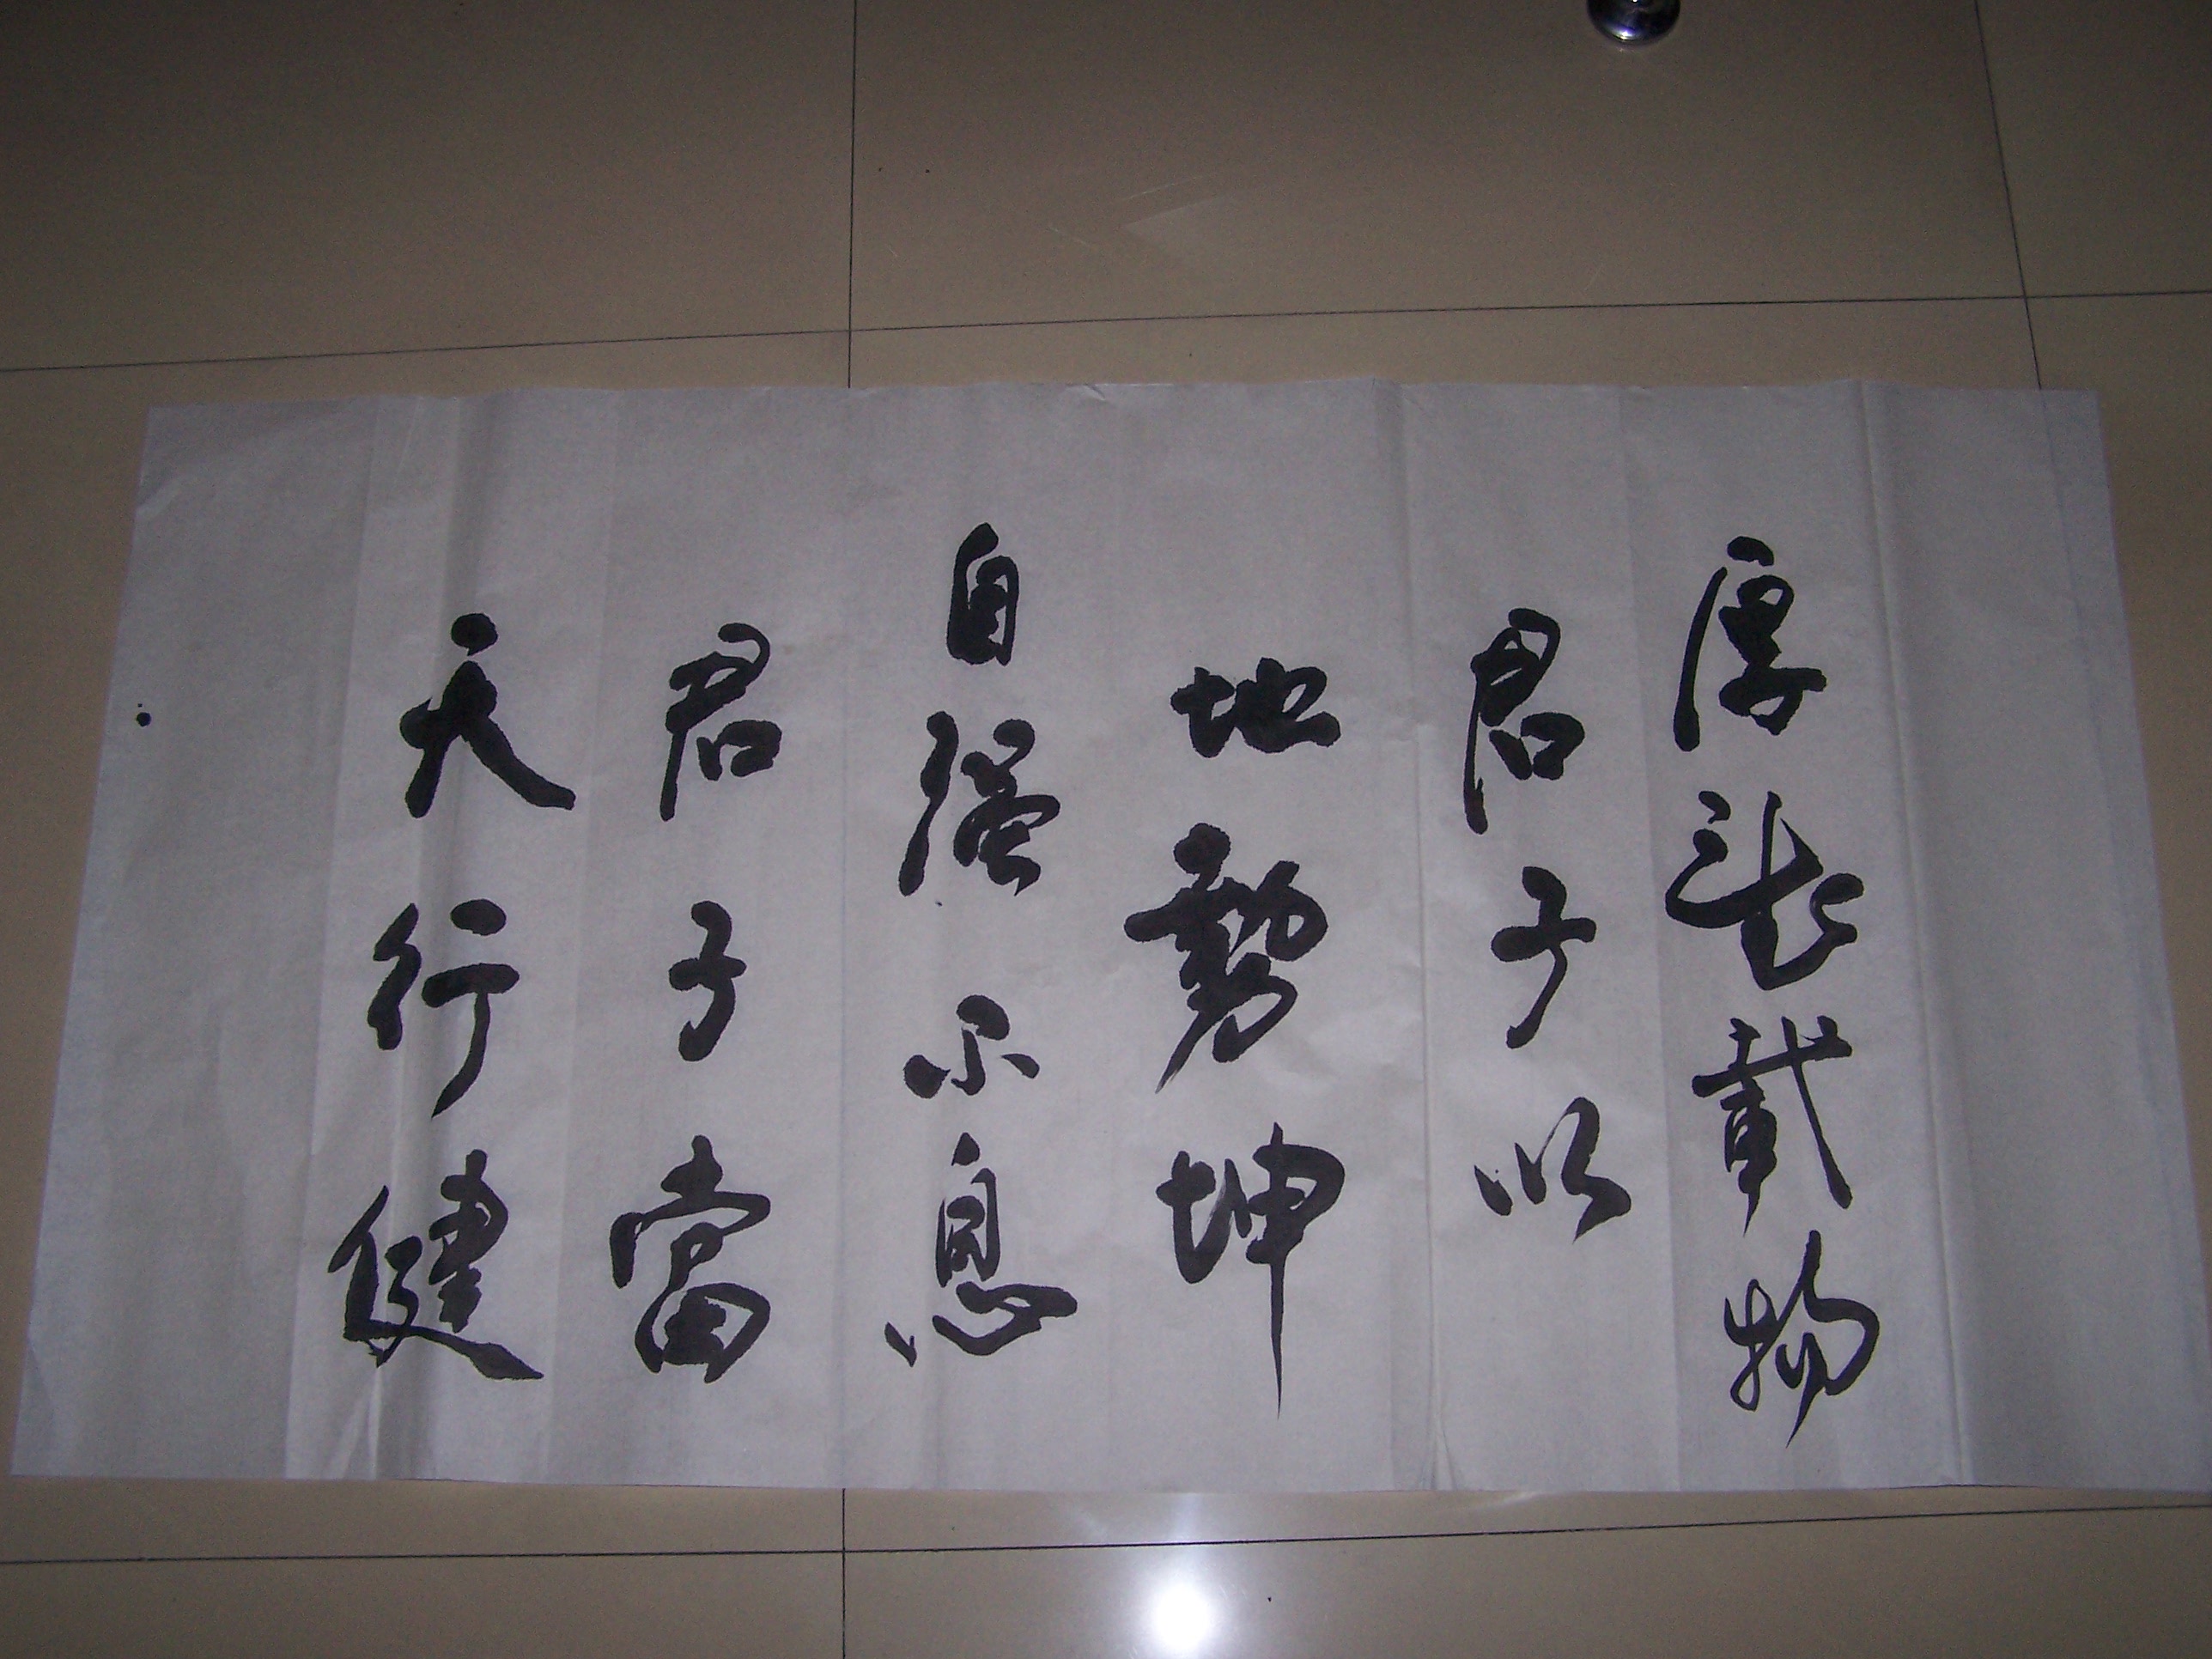 天行健
君子當
自强不息
地勢坤
君子以
厚德載物